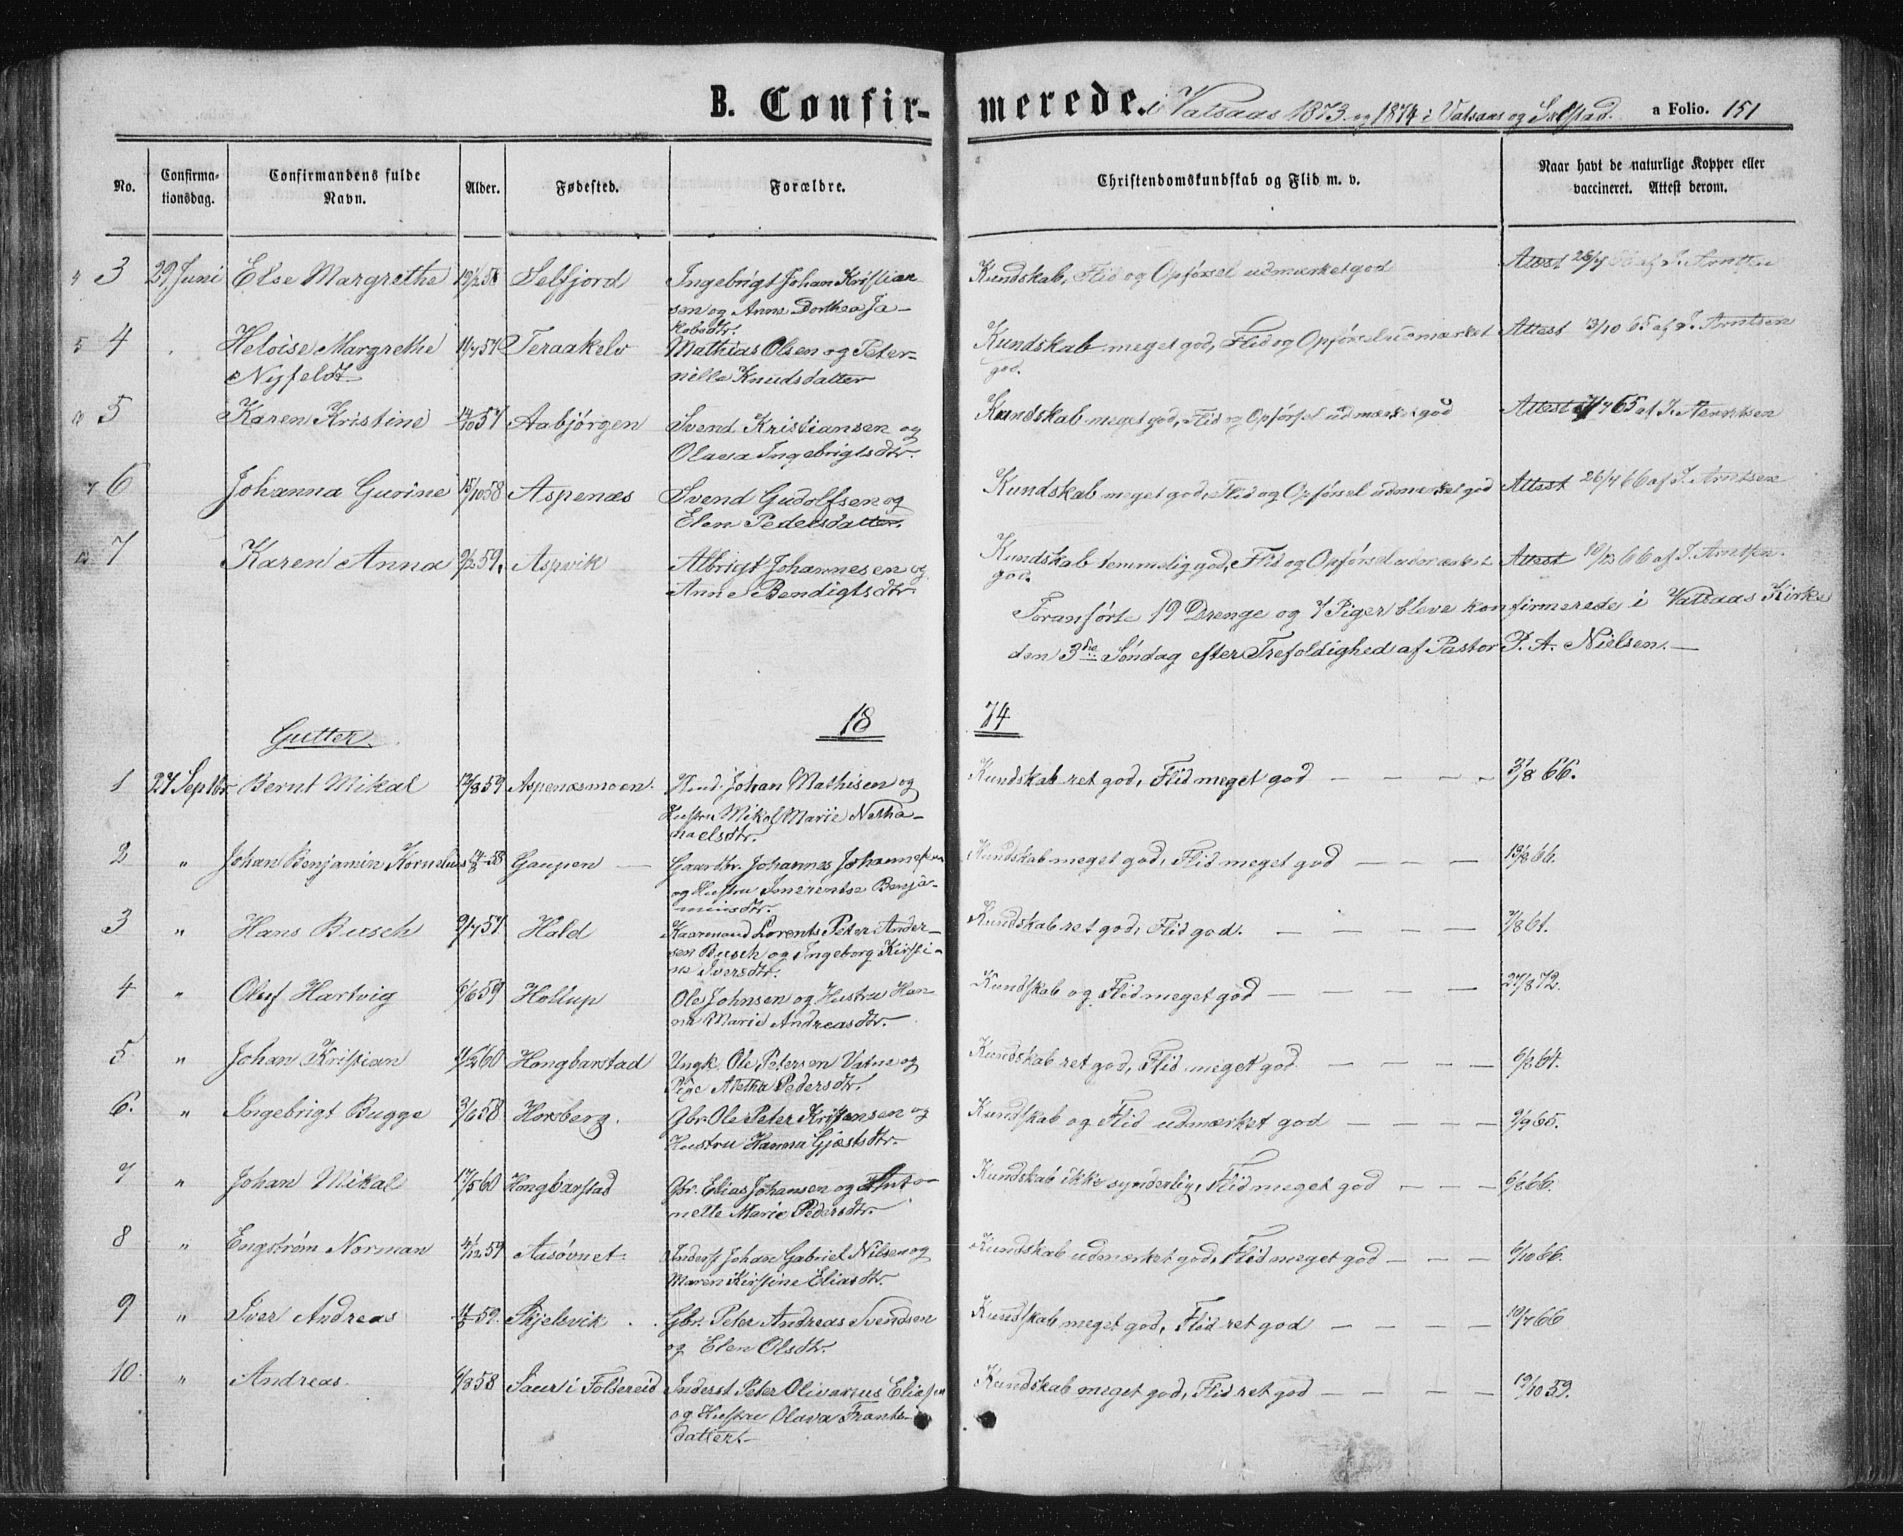 B. Confirmerede. i Vatsaas 1873 og 1874 i Vatsaas og Solstad. a Folio. 151
No. Confirmationsdag. Confirmandens fulde Navn. Alder. Fødested. Forældre. Christendomskundskab og Flid m. v. Naar havt de naturlige Kopper eller vaccineret. Attest derom.
3 29 Juni Else Margrethe 19/2 58 Selfjord Ingebrigt Johan Kristian- Kundskab, Flid og Opførsel udmærket god Attest af J. Arntsen
sen og Anne Dorthea Ja-
kobsdtr.
4 Heloise Margrethe 11/7 57 Teraakelv Mathias Olsen og Peter- Kundskab meget god, Flid og Opførsel udmærket Attest 13/10 65 af J. Arntsen
Nyfeldt nille Knudsdatter god.
5 Karen Kristine 57 Aabjørgen Svend Kristiansen og Kundskab meget god, Flid og Opførsel udmærket god Attest 65 af J. Arntsen
Olava Ingebrigtsdtr.
6 Johanna Gurine 15/10 58 Aspenæs Svend Gudolfsen og Kundskab meget god, Flid og Opførsel udmærket god Attest 26/7 66 af J. Arntsen
Elen Pedersdatter.
7 Karen Anna 9/2 59. Aspvik Albrigt Johannesen og Kundskab temmelig god, Flid og Opførsel udmærket Attest 66 af J. Arntsen.
Anne Bendigtsdtr. god.
Foranførte 19 Drenge og 7 Piger bleve konfirmerede i Vatsaas Kirke
den 3die Søndag efter Trefoldighed af Pastor P. A. Nielsen.
1874
Gutter.
1 27 Septbr Bernt Mikal 13/8 59 Aspenæsmoen. Johan Mathisen og Kundskab ret god, Flid meget god — — — 31/8 66.
Hustru Mikal Marie Natha-
naelsdtr.
2 " Johan Benjamin Kornelius 58 Gaupen — Gaardbr. Johannes Johannesen Kundskab meget god, Flid meget god — — — — 13/8 66.
og Hustru Benja-
minsdtr.
3 " Hans Busch 9/7 57 Hald Lorents Peter Ander- Kundskab ret god, Flid god. — — — — 7/8 61.
sen Busch og Ingeborg Kirsti-
ne Iversdtr.
4 " Oluf Hartvig 5/6 59 Hollup Ole Johnsen og Hustru Han- Kundskab og Flid meget god — — — — — 27/8 72.
na Marie Andreasdtr.
5 " Johan Kristian 4/2 60 Hongbarstad Ungk. Ole Petersen Vatne og Kundskab ret god, Flid meget god — — — — 6/8 64.
Pige Aletha Pedersdtr.
6. " Ingebrigt Bugge 3/6 58 Horsberg. Gbr. Ole Peter Kristensen og Kundskab og Flid udmærket god — — — — 9/9 65.
Hustru Hanna Gjæstsdtr.
7 " Johan Mikal 17/5 60 Hongbarstad Gbr. Elias Johansen og Anto- Kundskab ikke synderlig, Flid meget god — — — 6/8 66.
nelle Marie Pedersdtr.
8 " Engstrøm Norman 4/12 59 Aasøvnet. Inderst Johan Gabriel Nilsen og Kundskab udmærket god, Flid meget god — — — 6/10 66.
Maren Kirstine Eliasdtr.
9 " Iver Andreas 59. Skjelsvik . . Gbr. Peter Andreas Svendsen Kundskab meget god, Flid ret god — — — — 10/7 66
og Elen Olsdtr.
10. " Andreas 6/8 58 Saur i Foldereid Inderst Peter Olivarius Eliasen Kundskab meget god, Flid ret god — — — — 19/10 59.
og Hustru Olava Frants-
datter.